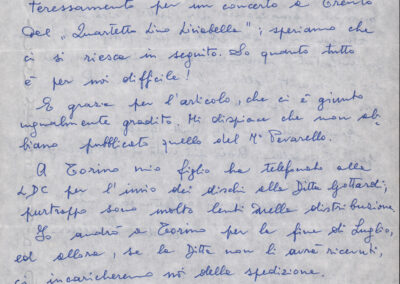 teressamento per un concerto a Trento
del „Quartetto Lino Liviabella"; speriamo che
ci si riesca in seguito. So quanto tutto
è per noi difficile!
E grazie per l'articolo, che ci è giunto
ugualmente gradito. Mi dispiace che non ab-
biano pubblicato quello del M° Pevarello.
A Torino mio figlio ha telefonato alla
LDC per l'invio dei dischi alla Ditta Gottardi;
purtroppo sono molto lenti nella distribuzione.
Io andrò a Torino per la fine di Luglio,
ed allora, se la Ditta non li avrà ricevuti,
ci incaricheremo noi della spedizione.